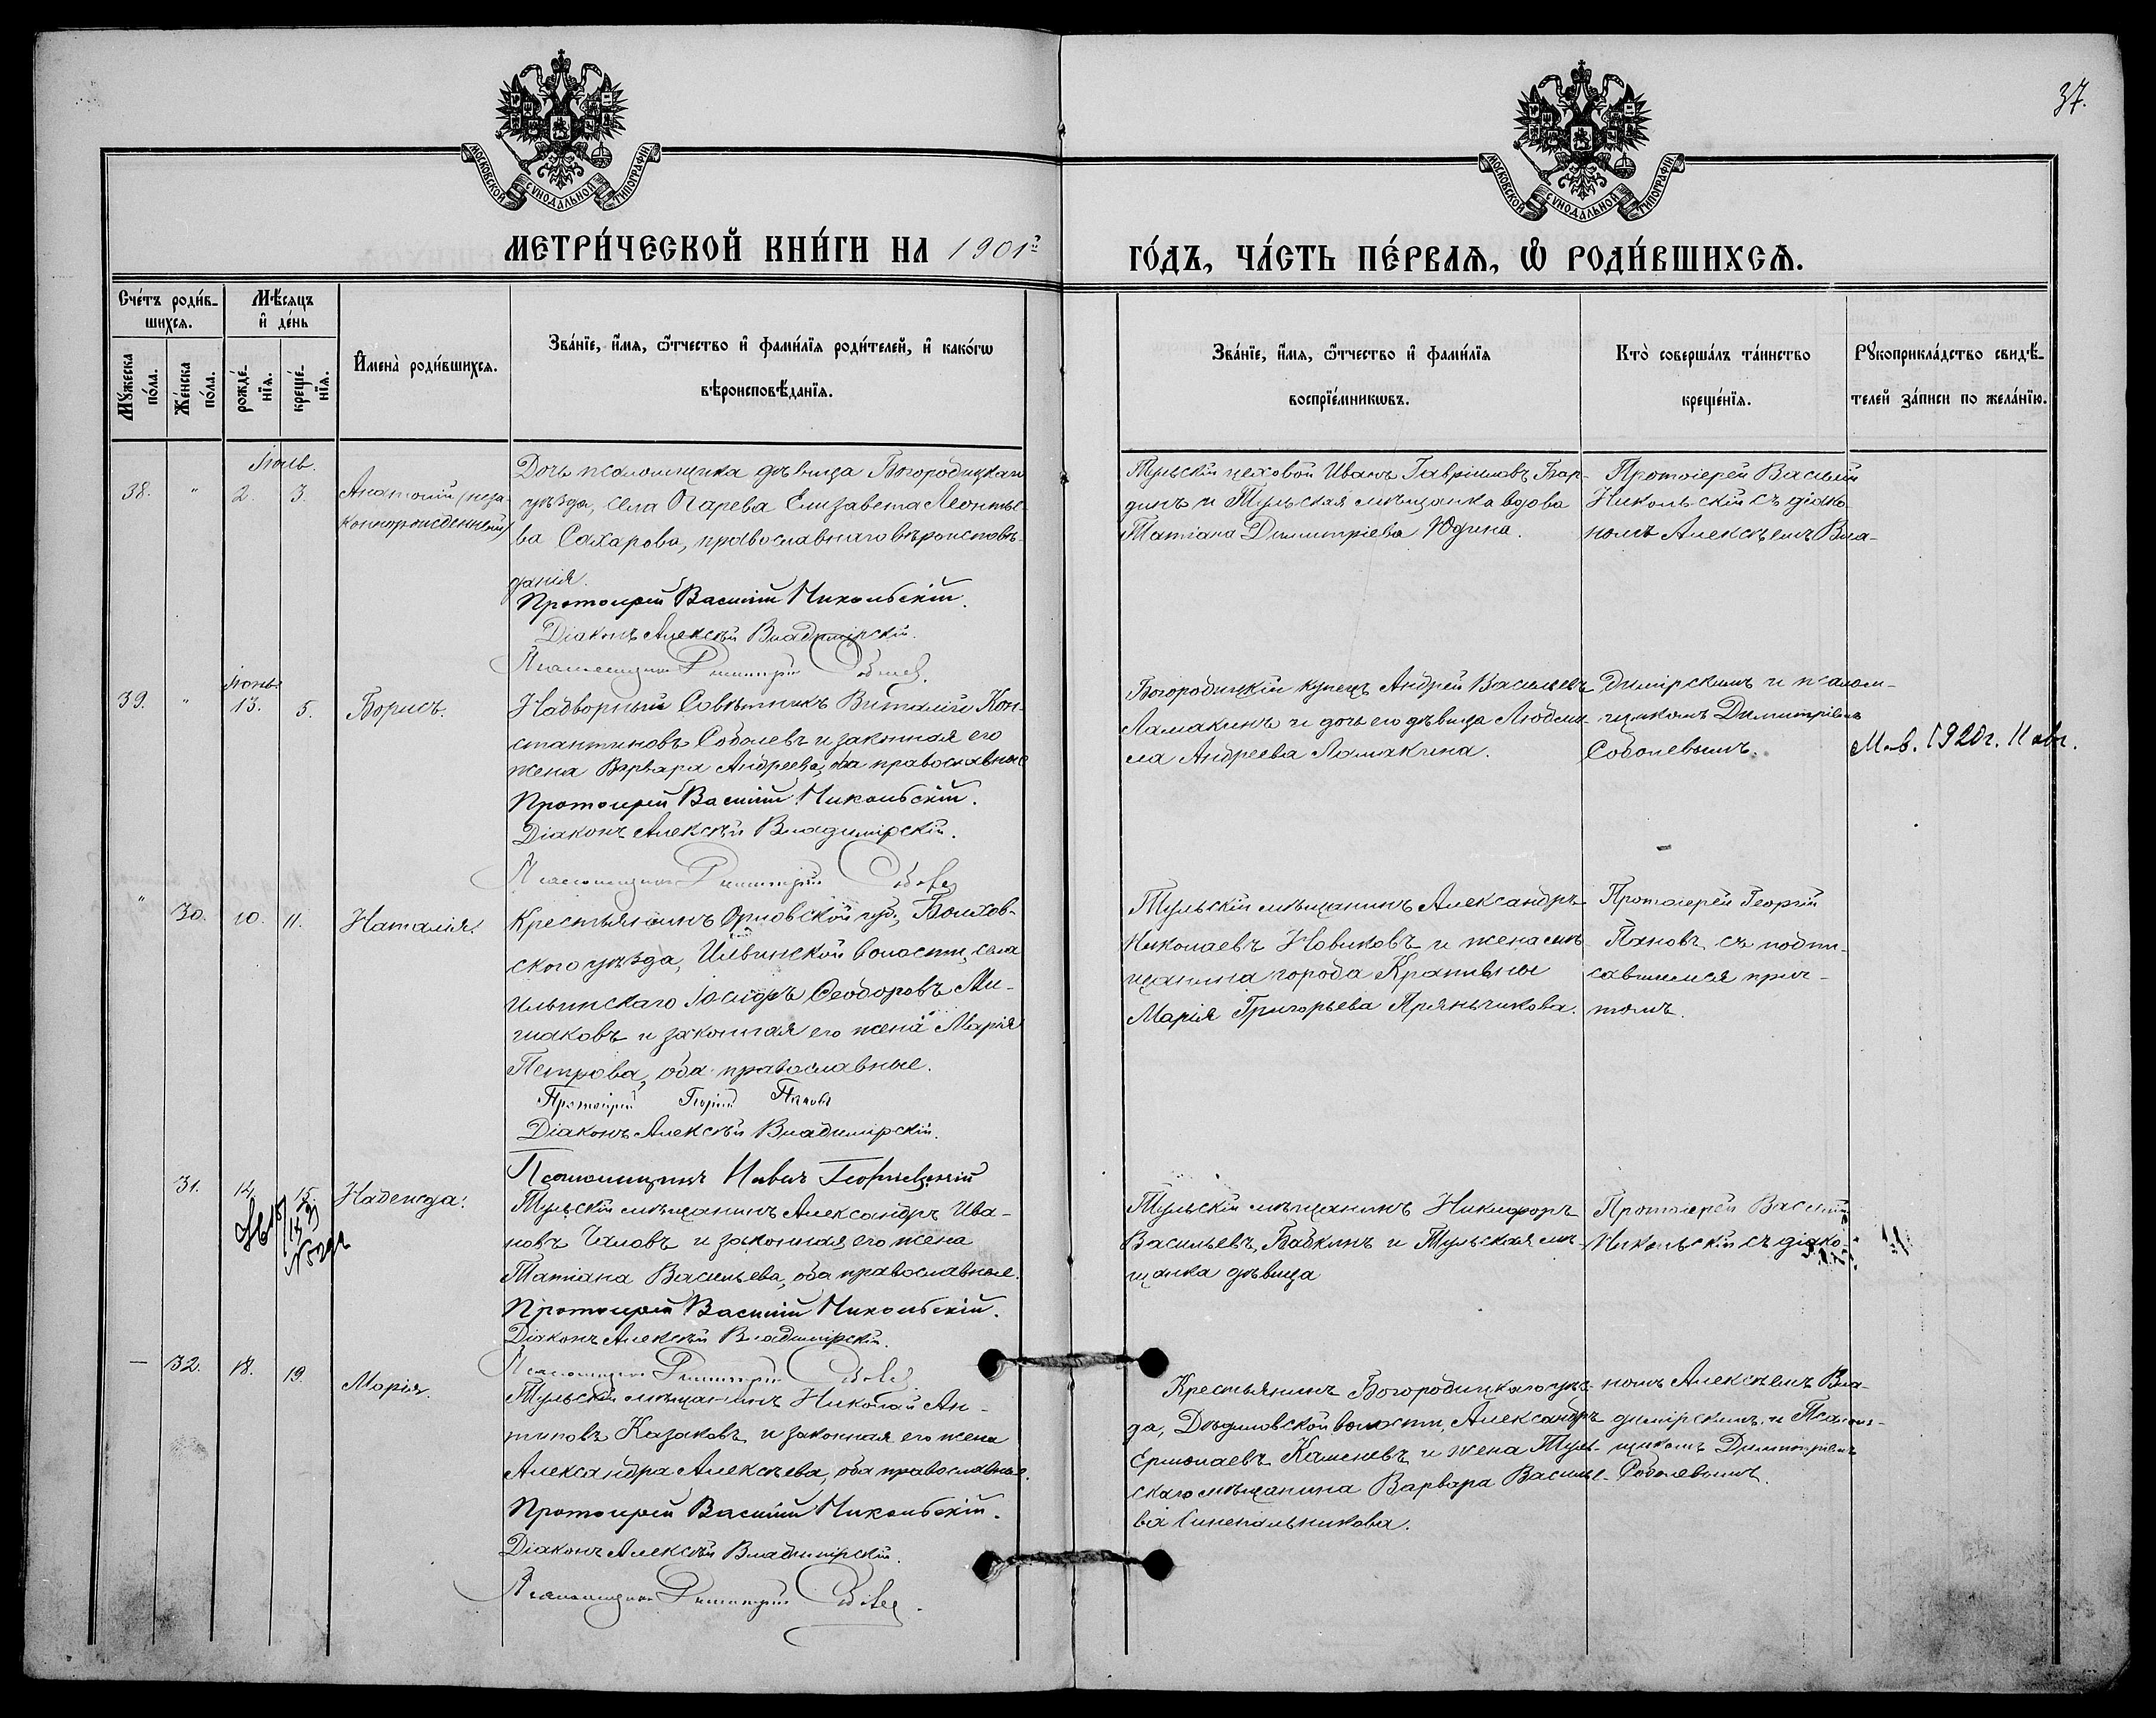 37.
МОСКОВСКОЙ СѴНОДАЛЬНОЙ ТИПОГРАФІИ
МОСКОВСКОЙ СѴНОДАЛЬНОЙ ТИПОГРАФІИ
МЕТРИ́ЧЕСКОЙ КНИ́ГИ НА 1901й
ГО́ДЪ, ЧА́СТЬ ПЕ́РВАѦ, Ѡ҆ РОДИ́ВШИХСѦ.
Сче́тъ роди́в-
шихсѧ.
Мꙋжеска по́ла.
Же́нска по́ла.
Мѣ́сѧцъ
и҆ де́нь
рожде́-
нїѧ.
креще́-
нїѧ.
И҆мена̀ роди́вшихсѧ.
Зва́нїе, и҆́мѧ, ѻ҆́тчество и҆ фами́лїѧ роди́телей, и҆ како́гѡ
вѣроисповѣ́данїѧ.
Зва́нїе, и҆́мѧ, ѻ҆́тчество и҆ фами́лїѧ
воспрїе́мникѡвъ.
Кто̀ соверша́лъ та́инство
креще́нїѧ.
Рꙋкоприкла́дство свидѣ́-
телей за́писи по жела́нїю.
Іюль.
38. " 2. 3.
Анатолій (неза-
коннорожденный)
Дочь псаломщика дѣвица Богородицкаго
уѣзда, села Огарева Елизавета Леонтье-
ва Сахарова, православнаго вѣроисповѣ-
данія.
Протоіерей Василій Никольскій.
Діаконъ Алексѣй Владимірскій.
Псаломщикъ Димитрій Соболев.
Тульскій цеховой Иванъ Гавриловъ Бар-
динъ и Тульская мѣщанка вдова
Татіана Димитріева Юдина.
Протоіерей Василій
Никольскій съ діако-
номъ Алексѣемъ Вла-
Іюнь
39. " 13. 5. Борисъ.
Надворный Совѣтникъ Виталій Кон-
стантиновъ Соболевъ и законная его
жена Варвара Андреева, оба православные
Протоіерей Василій Никольскій.
Діаконъ Алексѣй Владимірскій.
Псаломщикъ Димитрій Соболев
Богородицкій купецъ Андрей Васильевъ
Ламакинъ и дочь его дѣвица Людми-
ла Андреева Ламакина.
димірскимъ и псалом-
щикомъ Димитріемъ
Соболевымъ.
М. в. 1920г. 11 авг.
" 30. 10. 11. Наталія.
Крестьянинъ Орловской губ., Болхов-
ского уѣзда, Ильинской волости, села
Ильинскаго Ѳеодоровъ Ми-
шаковъ и законная его жена Марія
Петрова, оба православные.
Протоіерей Георгій Пановъ
Діаконъ Алексѣй Владимірскій.
Псаломщикъ Георгіевскій
Тульскій мѣщанинъ Александръ
Николаевъ Новиковъ и жена мѣ-
щанина города Крапивны
Марія Григорьева Пряничкова.
Протоіерей Георгій
Пановъ съ подпи-
савшимся прич-
томъ.
31. 14. 15. Надежда.
Тульскій мѣщанинъ Александръ Ива-
новъ и законная его жена
Татіана Васильева, оба православные.
Протоіерей Василій Никольскій.
Діаконъ Алексѣй Владимірскій.
Псаломщикъ Димитрій Соболев.
Тульскій мѣщанинъ Никифоръ
Васильевъ Бабкинъ и Тульская мѣ-
щанка дѣвица
Протоіерей Василій
Никольскій съ діако-
— 32. 18. 19. Марія.
Тульскій мѣщанинъ Николай Ан-
типовъ Казаковъ и законная его жена
Александра Алексѣева, оба православные.
Протоіерей Василій Никольскій.
Діаконъ Алексѣй Владимірскій.
Псаломщикъ Димитрій Соболев.
Крестьянинъ Богородицкаго уѣз-
да, Дѣдиловской волости, Александръ
Ермолаевъ Каменевъ и жена Туль-
скаго мѣщанина Варвара Василье-
ва Синепальникова.
номъ Алексѣемъ Вла-
димірскимъ и Псалом-
щикомъ Димитріемъ
Соболевымъ.